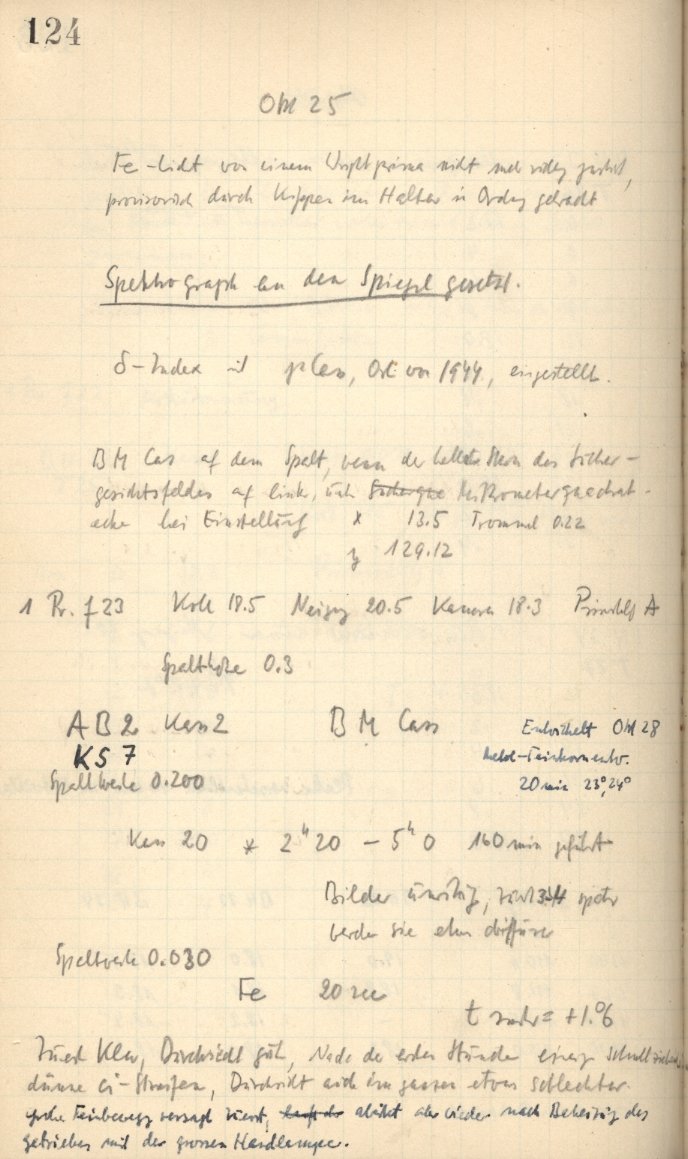 124
Okt 25
Fe-Licht von einem Umlenkprisma nicht mehr richtig justiert,
provisorisch durch Kippen im Halter in Ordng gebracht
Spektrograph an den Spiegel gesetzt.
δ-Index mit γ Cas, Ort von 1944, eingestellt.
BM Cas auf dem Spalt, wenn der hellste Stern des Sucher-
gesichtsfeldes auf linker, unt. Mikrometerquadrat-
ecke bei Einstellung x 13.5 Trommel 0.22
y 129.12
1 Pr. f 23 Koll 18.5 Neigung 20.5 Kamera 18.3 A
Spalthöhe 0.3
AB2 Kass 2 BM Cass Entwickelt Okt 28
KS 7 Metol-Feinkornentw.
Spaltweite 0.200 20 min 23°,24°
Kass 20 * 2h 20 – 5h 0 160 min geführt
Bilder unruhig, später
werden sie eher diffuser
Spaltweite 0.030
Fe 20 sec
t = +1.°6
Zuerst klar, Durchsicht gut, Nach der ersten Stunde einige schnell
dünne Ci-Streifen, Durchsicht auch im ganzen etwas schlechter.
Feinbewegg versagt zuerst, arbeitet aber wieder nach Beheizung des
Getriebes mit der grossen Handlampe.